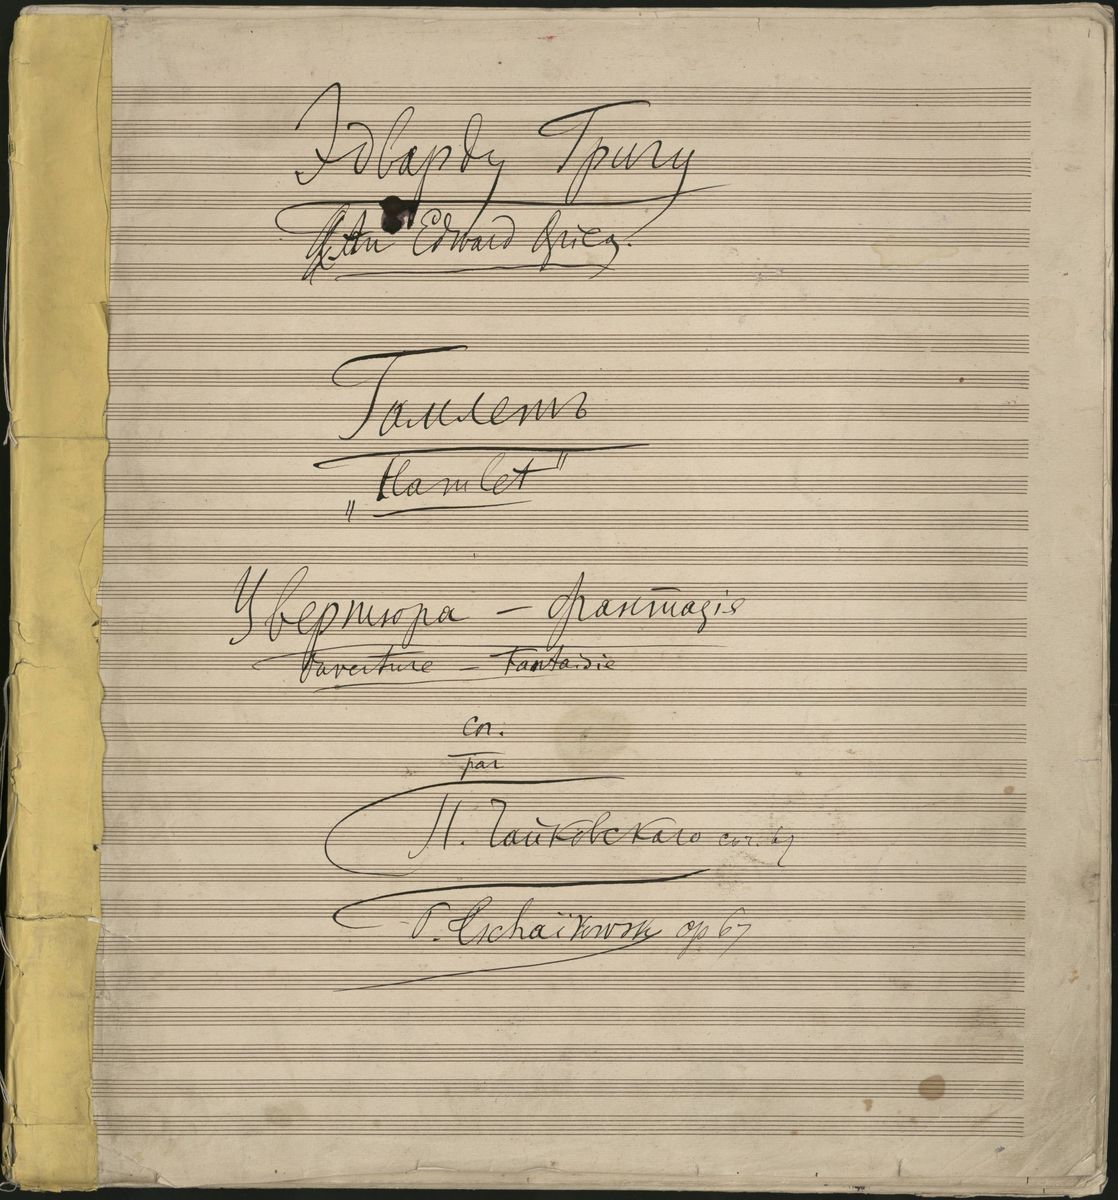 Эдварду Григу
An Edward Grieg.
Гамлетъ
„Hamlet"
Увертюра – фантазія
Ouverture – Fantaisie
соч.
par
П. Чайковскаго соч. 67
P. Tschaïkowsky op 67